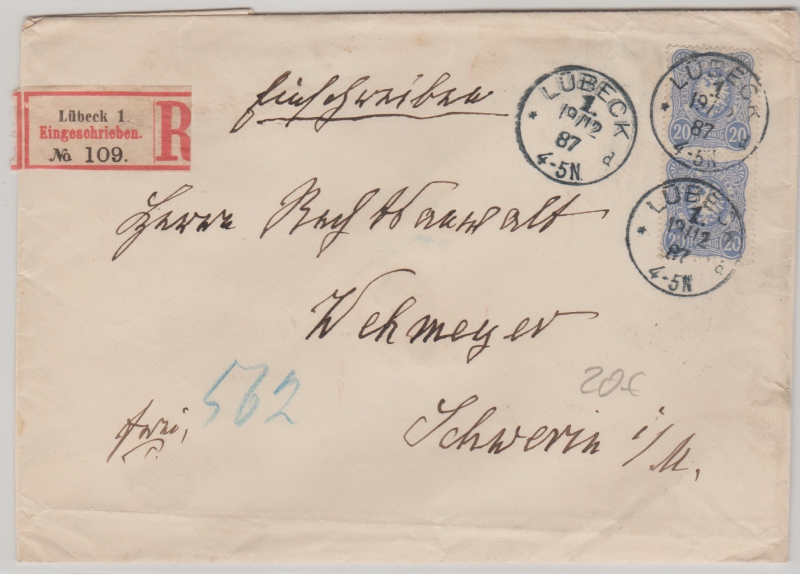 Einschreiben
Lübeck 1.
Eingeschrieben.
No 109.
R
LÜBECK
1.
19/12
87
4-5N.
d
LÜBECK
1
19/
87
4-5N.
d
20 20
LÜBECK
1.
19/12
87
4-5N
d
20 20
Herrn Rechtsanwalt
Wehmeyer
20.-€
frei,
562
Schwerin i/M.